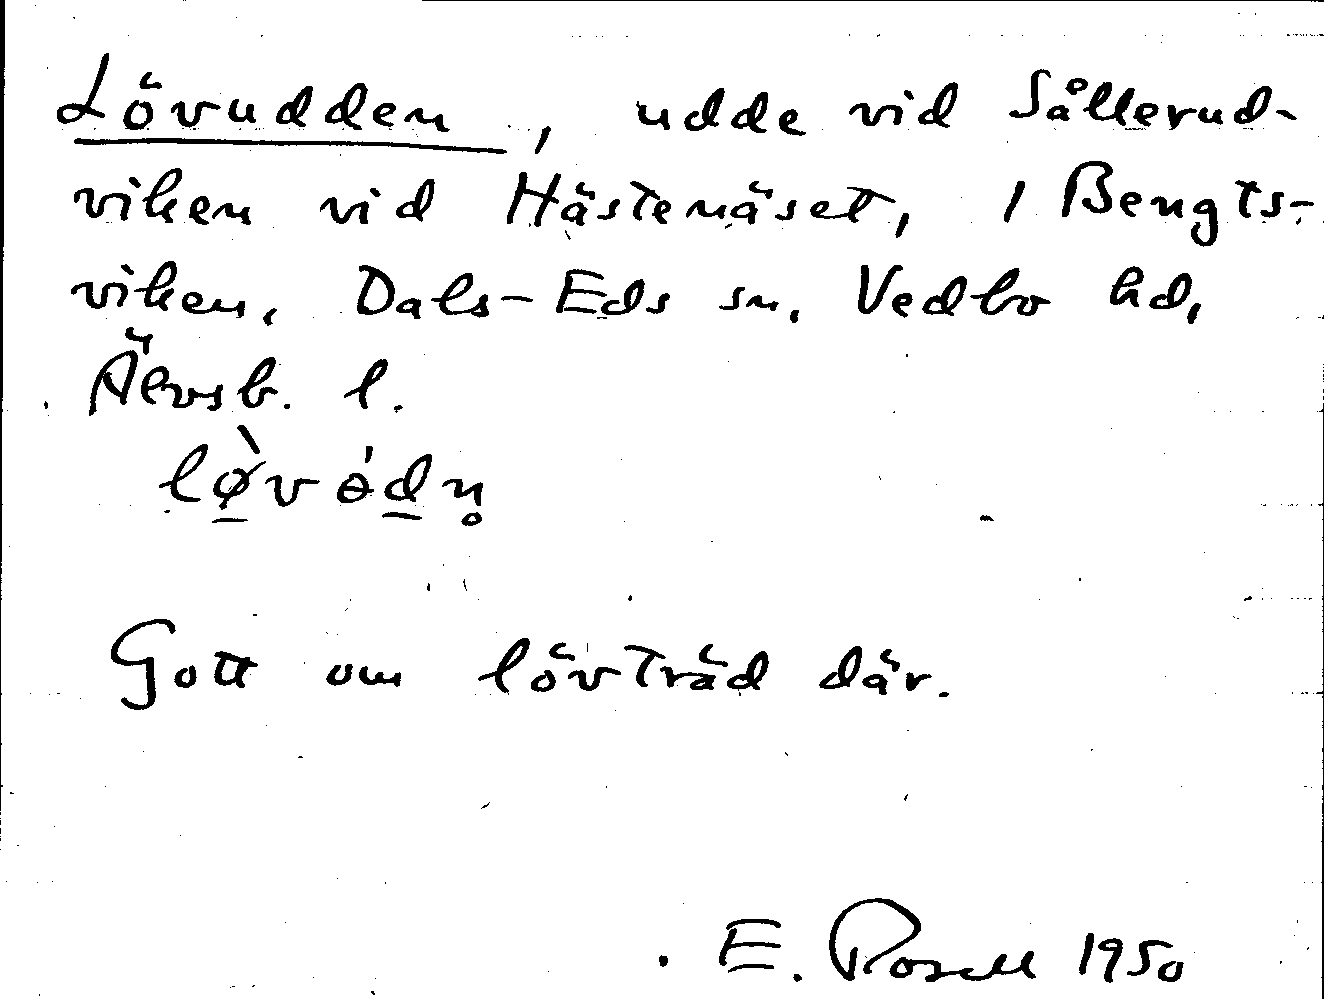 Lövudden, udde vid Sållerud-
viken vid Hästenäset, i Bengts-
viken, Dals-Eds sn, Vedbo hd,
Älvsb. l.
lø̱̀vɵ́ḏn̥
Gott om lövträd där.
E. Rosell 1950